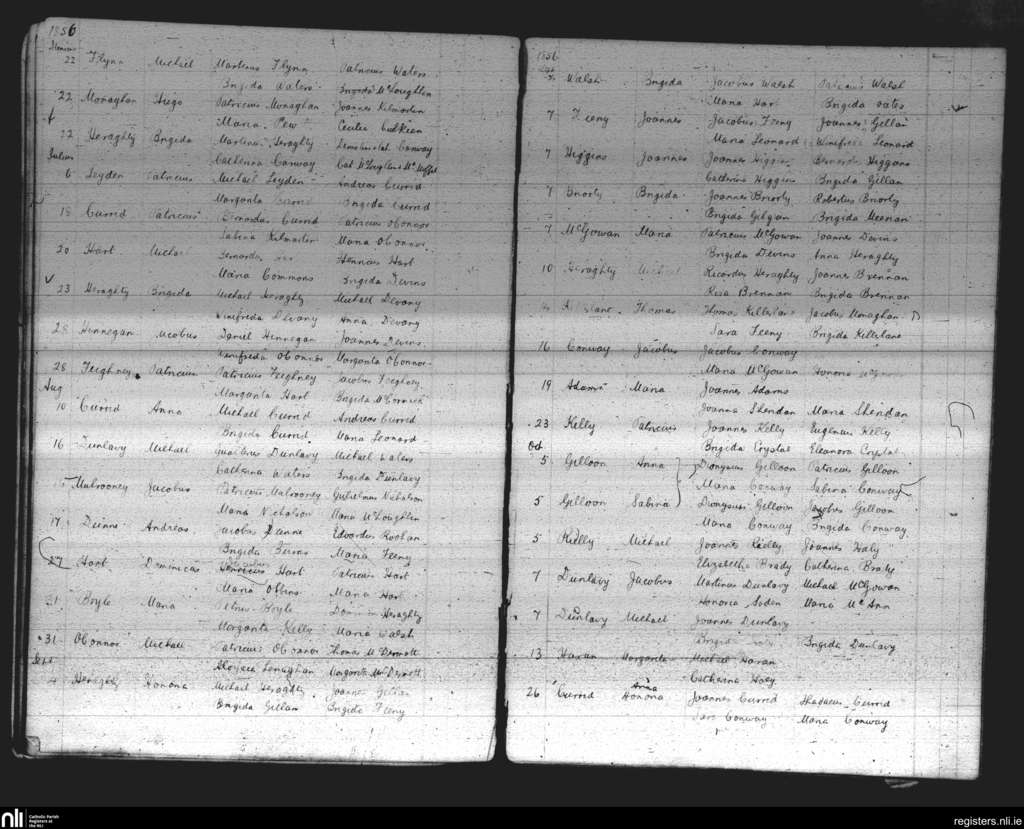 1856
22 Flynn Michael Martinus Flynn Patricius Waters
Brigida Waters Brigida McLoughlin
22 Monaghan Hugo Patricius Monaghan Joannes Kilmartin
Maria
22 Heraghty Brigida Martinus Heraghty Conway
Julius Catherina Conway
6 Leyden Patricius Michael Leyden Andreas Currid
Margarita Currid Brigida Currid
18 Currid Patricius Bernardus Currid Patricius OConnor
Sabina Kilmartin Maria OConnor
20 Hart Bernardus Henricus Hart
Maria Commons Brigida Devins
23 Heraghty Brigida Michael Heraghty Michael Devany
Winifreda Devany Anna Devany
28 Hennegan Jacobus Daniel Hennegan Joannes Devins
Winifreda OConnor Margarita OConnor
28 Feighney Patricius Patricius Feighney Jacobus Feighney
Aug Margarita Hart Brigida McCormick
10 Currid Anna Michael Currid Andreas Currid
Brigida Currid Maria Leonard
16 Dunlavy Michael Dunlavy Michael Waters
Catherina Waters Brigida Dunlavy
Mulrooney Jacobus Patricius Mulrooney Gulielmus Nicholson
Maria Nicholson Maria McLoughlin
17 Dunne Andreas Jacobus Dunne Edvardus
Brigida Burns Maria Feeny
27 Hart Dominicus Hart Patricius Hart
Maria Maria Hart
31 Boyle Maria Petrus Boyle Heraghty
Margarita Kelly Maria Walsh
31 OConnor Michael Patricius OConnor Thomas McDermott
Sept Lenaghan Margarita McDermott
4 Heraghty Honoria Michael Heraghty Joannes
Brigida Gillan Brigida Feeny
1856
Walsh Brigida Jacobus Walsh Patricius Walsh
Maria Hart Brigida
7 Feeny Joannes Jacobus Feeny Joannes Gillan
Maria Leonard Winifred Leonard
7 Higgins Joannes Joannes Higgins Bernardus Higgins
Catherina Higgins Brigida Gillan
7 Briorty Brigida Joannes Briorty Robertus Briorty
Brigida Gilgan Brigida Meenan
7 McGowan Maria Patricius McGowan Joannes Devins
Brigida Devins Anna Heraghty
10 Heraghty Michael Ricardus Heraghty Joannes Brennan
Rosa Brennan Brigida Brennan
Thomas Thomas Killelane Jacobus Monaghan
Sara Feeny Brigida Killelane
16 Conway Jacobus Jacobus Conway
Maria McGowan Honoria
19 Adams Maria Joannes Adams
Joanna Sheridan Maria Sheridan
23 Kelly Patricius Joannes Kelly Eugenius Kelly
Oct Brigida Crystal Eleanora Crystal
5 Gilloon Anna Dionysius Gilloon Patricius Gilloon
Maria Conway Sabina Conway
5 Gilloon Sabina Dionysius Gilloon Jacobus Gilloon
Maria Conway Brigida Conway
5 Reilly Michael Joannes Reilly Joannes Healy
Elizabetha Brady Catherina Brady
7 Dunlavy Jacobus Martinus Dunlavy Michael McGowan
Honoria Soden Maria McAnn
7 Dunlavy Michael Joannes Dunlavy
Brigida Brigida Dunlavy
13 Haran Margarita Michael Haran
Catherina Hoey
Anna
26 Currid Honoria Joannes Currid Thadaeus Currid
Sara Conway Maria Conway
nli Catholic Parish
Registers at
the NLI
registers.nli.ie